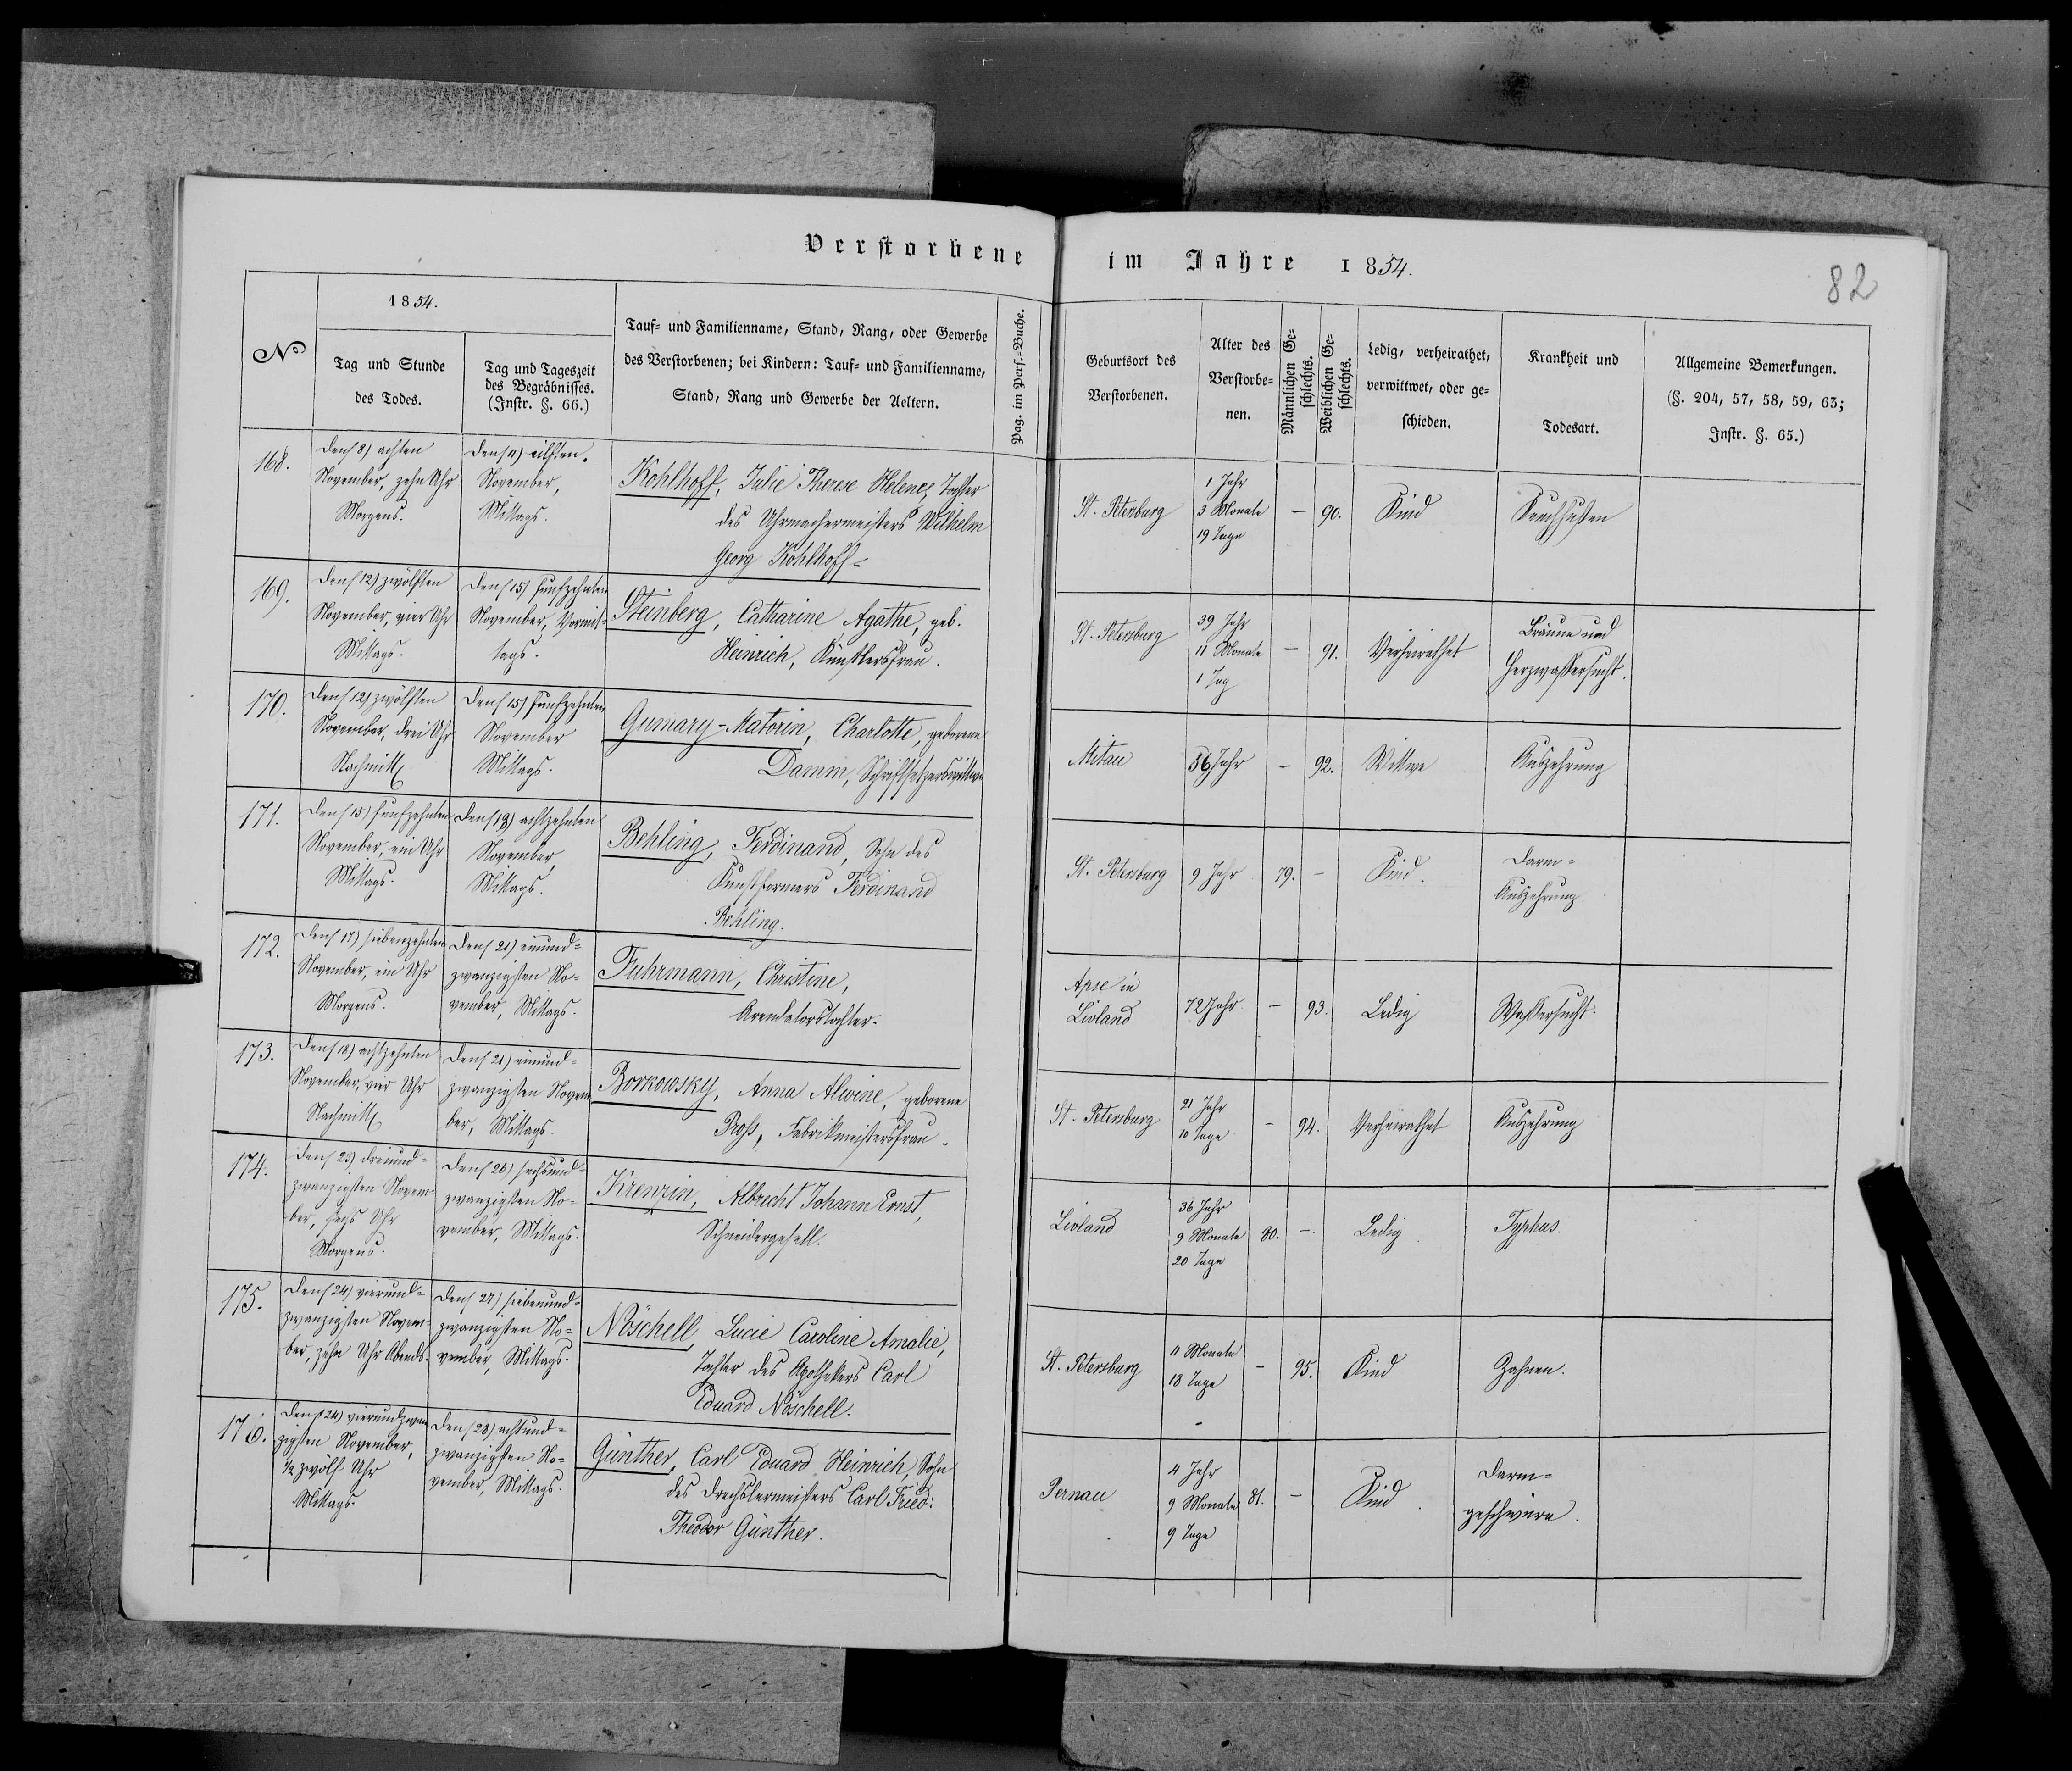 Verstorbene im Jahre 1854.
82
No
1854.
Tag und Stunde
des Todes.
Tag und Tageszeit
des Begräbnisses.
(Instr. §. 66.)
Tauf- und Familienname, Stand, Rang, oder Gewerbe
des Verstorbenen; bei Kindern: Tauf- und Familienname,
Stand, Rang und Gewerbe der Aeltern.
Pag. im Pers.-Buche.
Geburtsort des
Verstorbenen.
Alter des
Verstorbe-
nen.
Männlichen Ge-
schlechts.
Weiblichen Ge-
schlechts.
Ledig, verheirathet,
verwittwet, oder ge-
schieden.
Krankheit und
Todesart.
Allgemeine Bemerkungen.
(§. 204, 57, 58, 59, 63;
Instr. §. 65.)
168.
Den (8) achten
November, zehn Uhr
Morgens.
Den (11) eilften
November,
Mittags.
Kohlhoff, Julie Therese Helene, Tochter
des Uhrmachermeisters Wilhelm
Georg Kohlhoff.
St. Petersburg
1 Jahr
3 Monate
19 Tage
— 90.
Kind
Keuchhusten
169.
Den (12) zwölften
November, vier Uhr
Mittags.
Den (15) funfzehnten
November, Vormit-
tags.
Steinberg, Catharine Agathe, geb.
Heinrich, Künstlersfrau.
St. Petersburg
39 Jahr
11 Monate
1 Tag
— 91.
Verheirathet
Bräune und
Herzwassersucht.
170.
Den (12) zwölften
November, drei Uhr
Nachmitt.
Den (15) funfzehnten
November
Mittags.
Gumary-Matorin, Charlotte, geborene
Damm, Schriftsetzerswittwe
Mitau
56 Jahr
— 92.
Wittwe
Auszehrung
171.
Den (15) funfzehnten
November, ein Uhr
Mittags.
Den (18) achtzehnten
November,
Mittags.
Behling, Ferdinand, Sohn des
Kunstformers Ferdinand
Behling.
St. Petersburg
9 Jahr
79. —
Kind.
Darm-
Auszehrung
172.
Den (17) siebenzehnten
November, ein Uhr
Morgens.
Den (21) einund-
zwanzigsten No-
vember, Mittags.
Fuhrmann, Christine,
Arendatorstochter.
Apse in
Livland
72 Jahr
— 93.
Ledig
Wassersucht.
173.
Den (18) achtzehnten
November, vier Uhr
Nachmitt.
Den (21) einund-
zwanzigsten Novem-
ber, Mittags.
Borkowsky, Anna Alwine, geborene
Pross, Fabrikmeistersfrau.
St. Petersburg
21 Jahr
10 Tage
— 94.
Verheirathet
Auszehrung
174.
Den (23) dreiund-
zwanzigsten Novem-
ber, sechs Uhr
Morgens.
Den (26) sechsund-
zwanzigsten No-
vember, Mittags.
Krenzin, Albrecht Johann Ernst,
Schneidergesell.
Livland
36 Jahr
9 Monate
20 Tage
80. —
Ledig
Typhus.
175.
Den (24) vierund-
zwanzigsten Novem-
ber, zehn Uhr Abends.
Den (27) siebenund-
zwanzigsten No-
vember, Mittags.
Nöschell Lucie Caroline Amalie,
Tochter des Apothekers Carl
Eduard Nöschell.
St. Petersburg
11 Monate
18 Tage
— 95.
Kind
Zahnen.
176.
Den (24) vierundzwan-
zigsten November,
1/2 zwölf Uhr
Mittags.
Den (28) achtund-
zwanzigsten No-
vember, Mittags.
Günther, Carl Eduard Heinrich, Sohn
des Drechslermeisters Carl Fried:
Theodor Günther.
Pernau
4 Jahr
9 Monate
9 Tage
81. —
Kind
Darm-
geschwüre.